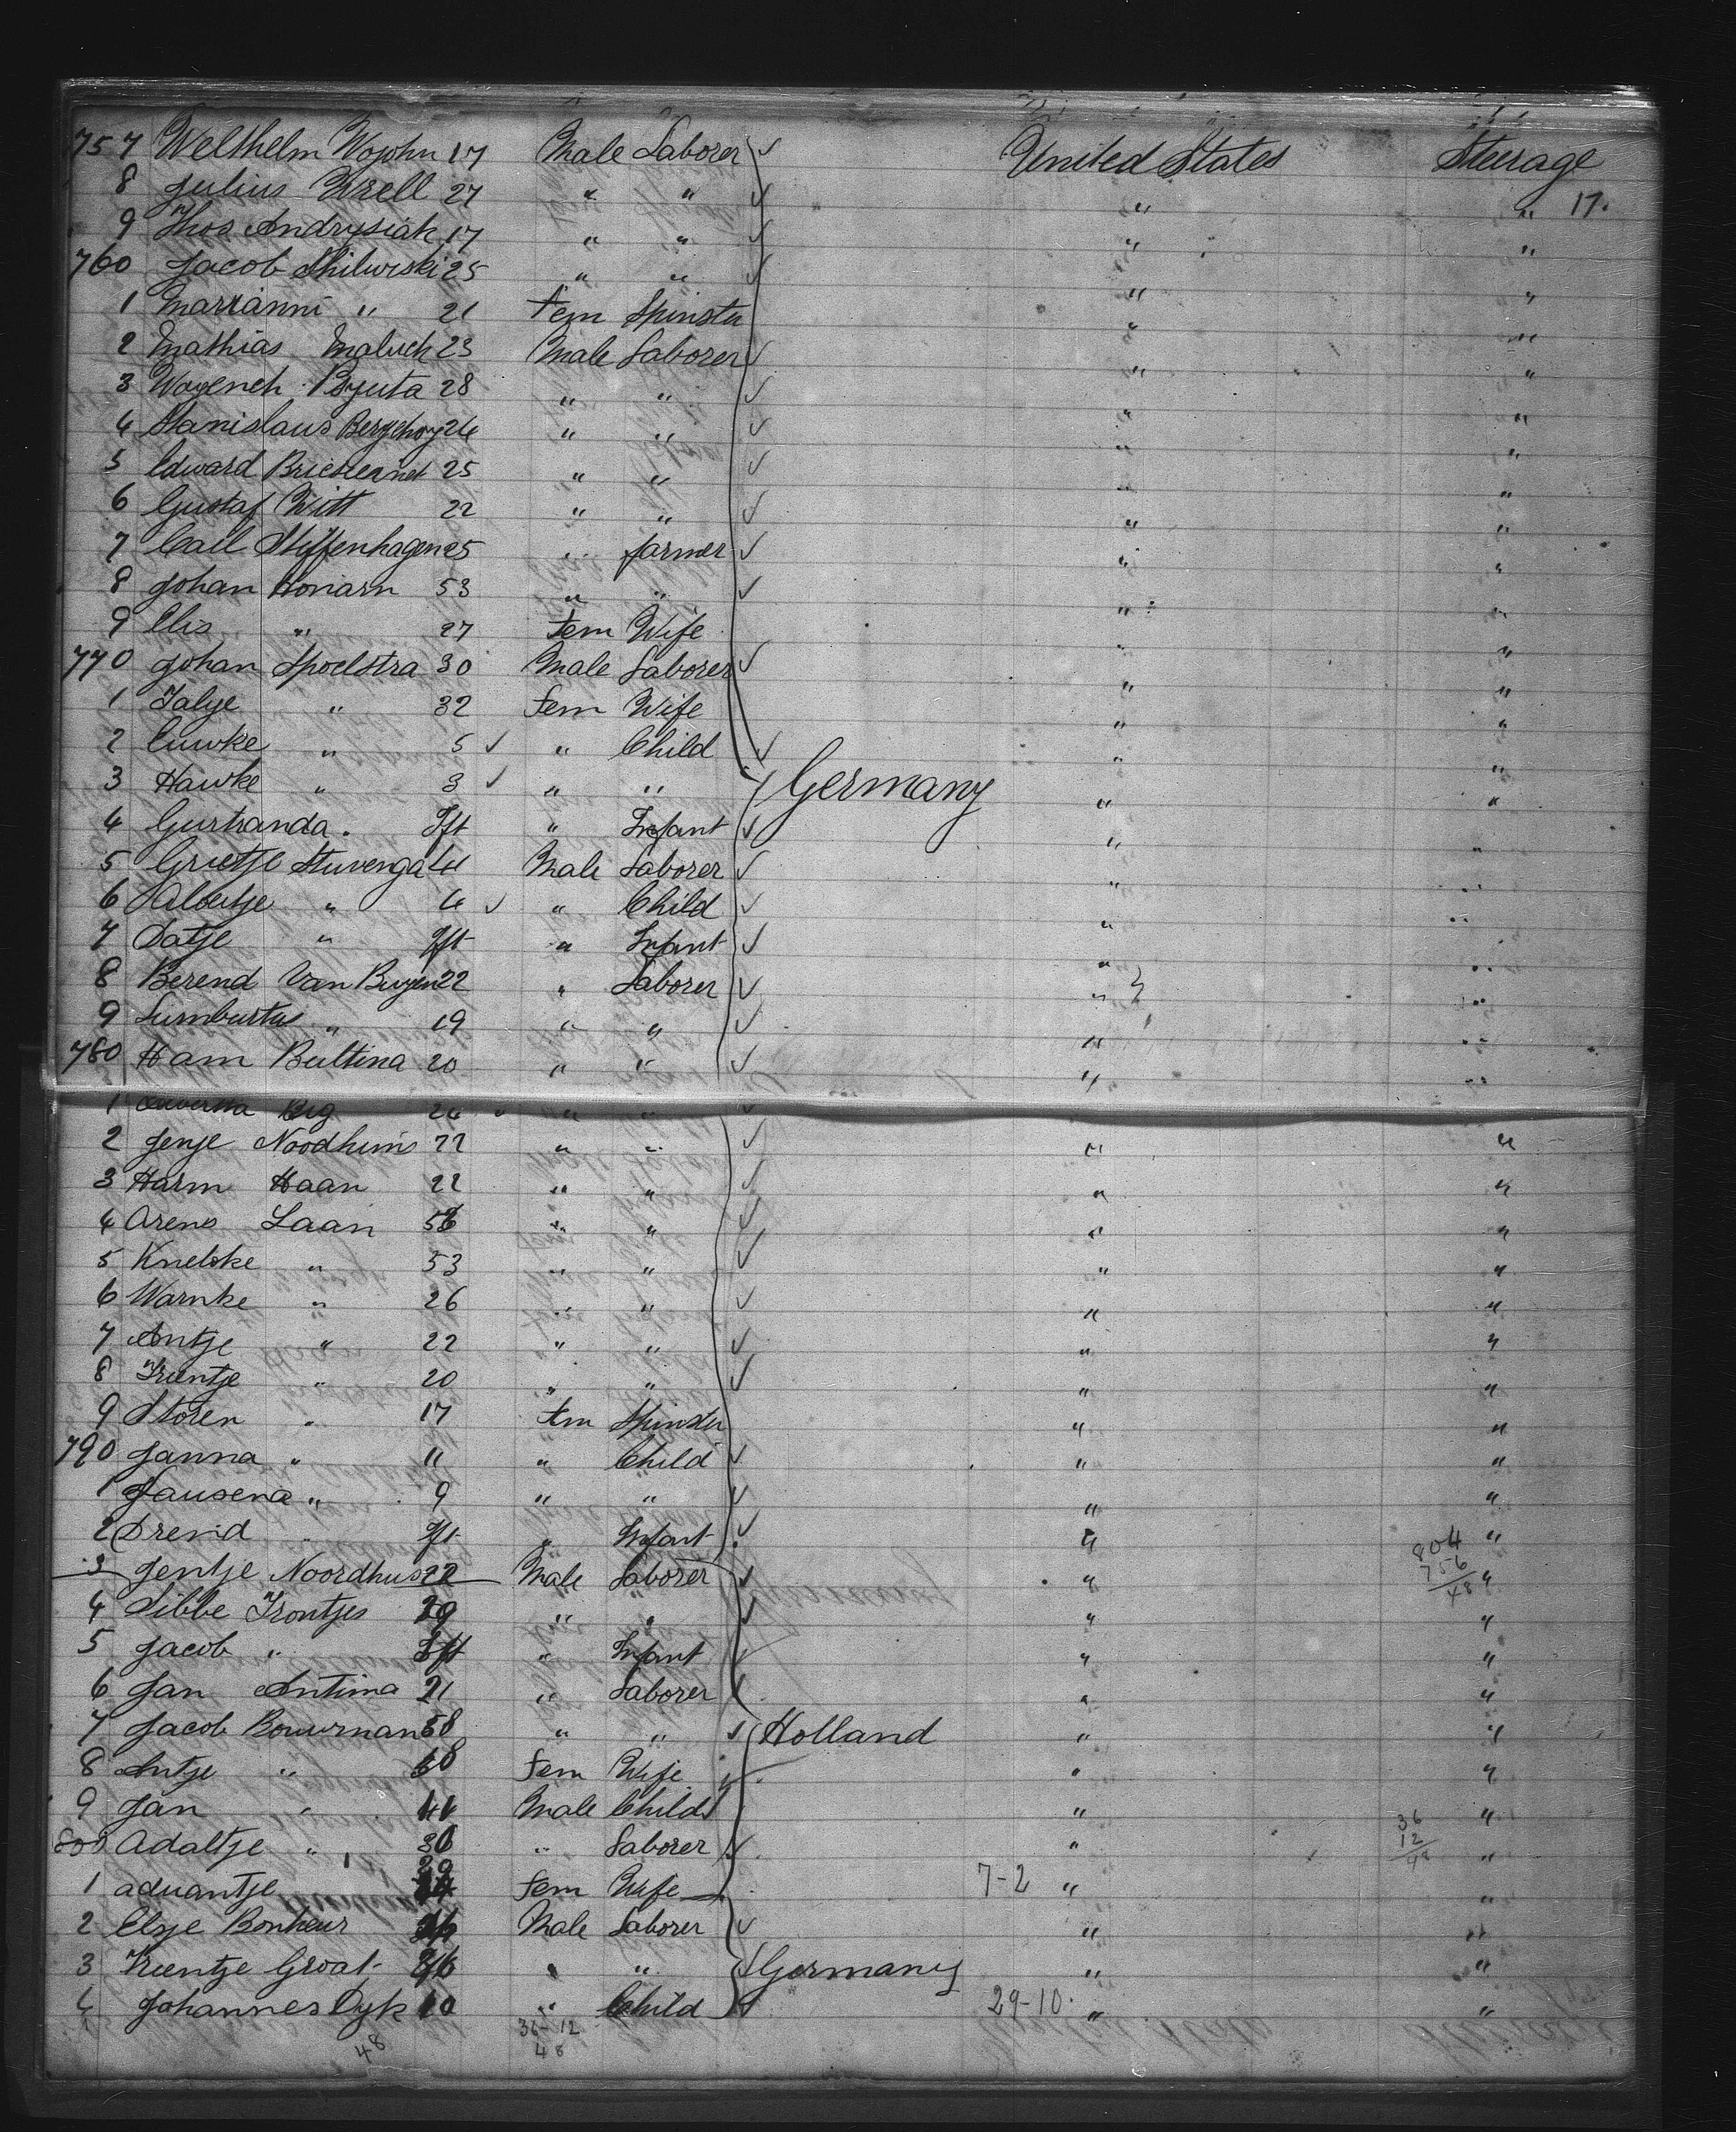 757 Welthelm Wojohn 17 Male Laborer United States Steerage
8 Julius Krell 27 " " " " 17.
9 Thos Andrysiak 17 " " " "
760 Jacob 25 " " " "
1 Marianni " 21 Fem Spinster " "
2 Mathias Maluch 23 Male Laborer " "
3 28 " " " "
4 Stanislaus 24 " " " "
5 Edward 25 " " " "
6 Gustaf Witt 22 " " " "
7 Carl Stiffenhagen 25 " farmer " "
8 Johan 53 " " " "
9 Elis " 27 Fem Wife " "
770 Johan Spoelstra 30 Male Laborer " "
1 Talye " 32 Fem Wife " "
2 Cuwke " 5 " Child " "
3 Hawke " 3 " " Germany " "
4 Gurtranda " Ift " Infant " "
5 Grietje Stuvenga 44 Male Laborer " "
6 Albertje " 4 " Child " "
7 Datje " Ift " Infant " "
8 Berend Van Buyen 22 " Laborer " "
9 Lumburtus " 19 " " " "
780 Ham Bultina 20 " " " "
1 24 " "
2 Jenje Noodhuis 22 " " " "
3 Harm Haan 22 " " " "
4 Arens Laan 56 " " " "
5 Knelske " 53 " " " "
6 Warnke " 26 " " " "
7 Antje " 22 " " " "
8 Trientje " 20 " " " "
9 Storen " 17 Fem Spinster " "
790 Janna " 11 " Child " "
1 Jausena " 9 " " " "
2 Drevid " Ift " Infant " "
804
756
48
3 Jentje Noordhus 22 Male Laborer " "
4 Sibbe Trontjes 29 " " " "
5 Jacob " Ift " Infant " "
6 Jan Antima 21 " Laborer " "
7 Jacob Bouwman 58 " " Holland " "
8 Antje " Fem Wife " "
9 Jan " Male Child " "
36
12
48
800 Adaltje " " Laborer " "
1 aduantje 29 Fem Wife 7-2 " "
2 Elsje Bonheur Male Laborer " "
3 Trientje Groat " " Germany " "
4 Johannes Dyk 10 " Child 29-10 " "
48 36-12
48